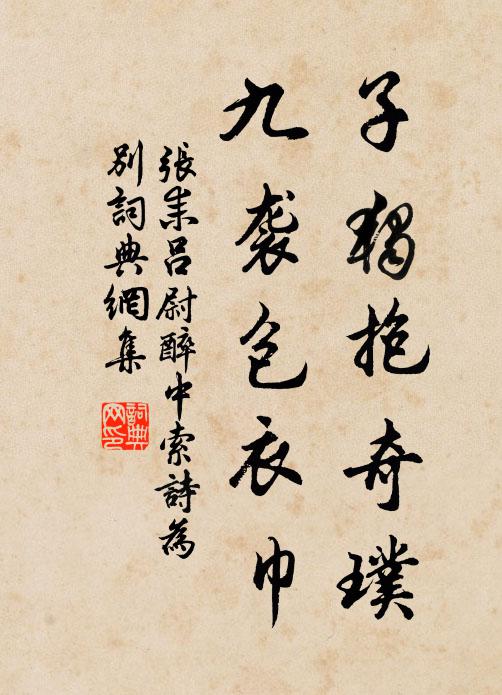 子獨抱奇璞
九袭包衣巾
張耒吕尉醉中索詩為
別詞典網集
詞典
网印